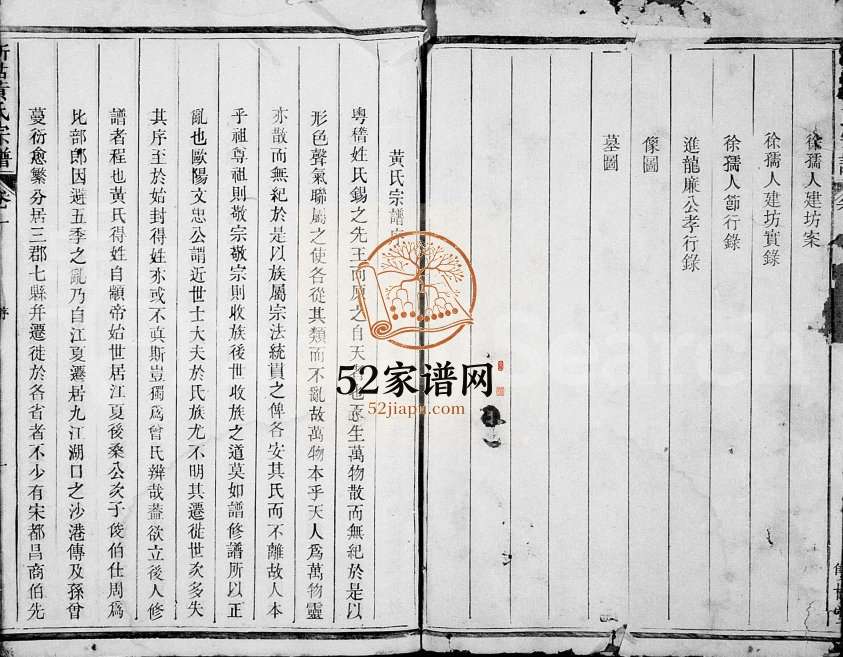 徐孺人建坊案
徐孺人建坊實錄
徐孺人節行錄
進龍廉公孝行錄
像圖
墓圖
黃氏宗譜
粵稽姓氏錫之先王而原之自天 也 生萬物散而無紀於是以
形色聲氣聯屬之使各從其類而不亂故萬物本乎天人爲萬物靈
亦散而無紀於是以族屬宗法統貫之俾各安其氏而不離故人本
乎祖尊祖則敬宗敬宗則收族後世收族之道莫如譜修譜所以正
亂也歐陽文忠公謂近世士大夫於氏族尤不明其遷徙世次多失
其序至於始封得姓亦或不真斯豈獨爲曾氏辨哉蓋欲立後人修
譜者程也黃氏得姓自顓帝始世居江夏後桑公次子俊伯仕周爲
比部郎因避五季之亂乃自江夏遷居九江湖口之沙港傳及孫曾
蔓衍愈繁分居三郡七縣并遷徙於各省者不少有宋都昌商伯先
黃氏宗譜
52家谱网
52jiapu.com